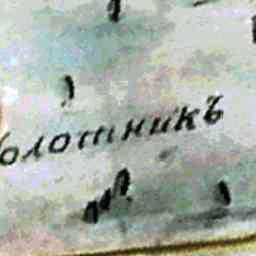 олошникъ